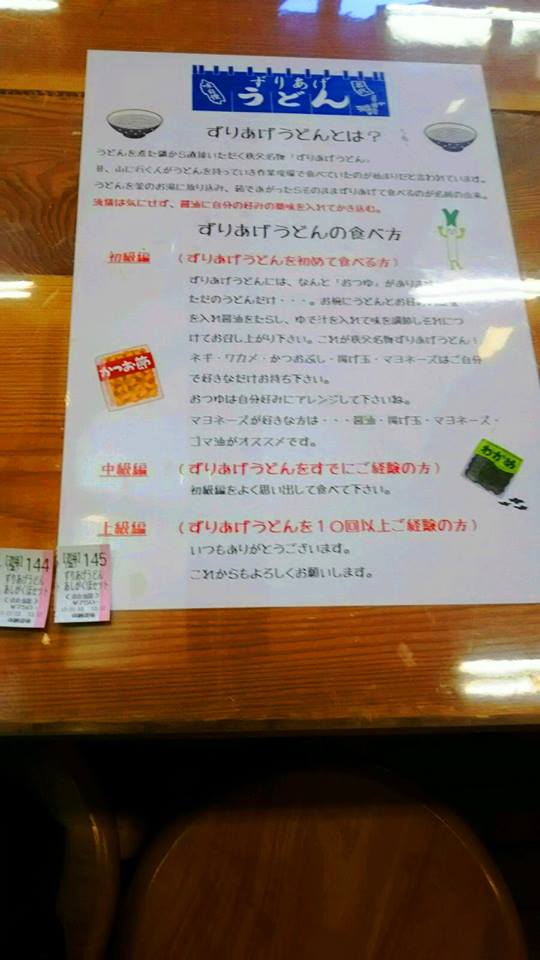 ずりあげ
うどん
ずりあげうどんとは？
うどんを煮た鍋から直接いただく秩父名物「ずりあげうどん」
昔、山に行く人がうどんを持っていき作業現場で食べていたのが始まりだと言われています。
うどんを釜のお湯に放り込み、茹であがったらそのままずりあげて食べるのが名前の由来。
洗練は気にせず、醤油に自分の好みの薬味を入れてかき込む。
ずりあげうどんの食べ方
初級編 （ずりあげうどんを初めて食べる方）
ずりあげうどんには、なんと「おつゆ」がありま
ただのうどんだけ・・・。お椀にうどんとお好
を入れ醤油をたらし、ゆで汁を入れて味を調節しそれにつ
けてお召し上がり下さい。これが秩父名物ずりあげうどん！
ネギ・ワカメ・かつおぶし・揚げ玉・マヨネーズはご自分
で好きなだけお持ち下さい。
おつゆは自分好みにアレンジして下さいね。
マヨネーズが好きな方は・・・醤油・揚げ玉・マヨネーズ・
ゴマ油がオススメです。
かつお節
わかめ
中級編 （ずりあげうどんをすでにご経験の方）
初級編をよく思い出して食べて下さい。
上級編 （ずりあげうどんを１０回以上ご経験の方）
いつもありがとうございます。
これからもよろしくお願いします。
144
ずりあげうどん
あしがくぼセット
¥750
145
ずりあげうどん
あしがくぼセット
¥750